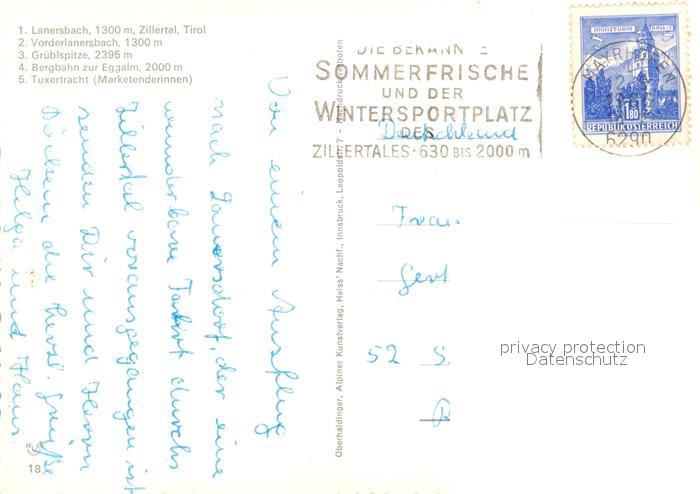 1. Lanersbach, 1300 m, Zillertal, Tirol
2. Vorderlanersbach, 1300 m
3. Grüblspitze, 2395 m
4. Bergbahn zur Eggalm, 2000 m
5. Tuxertracht (Marketenderinnen)
Von einem Ausflug
nach Lanersdorf, der eine
wunderbare Fahrt durchs
Zillertal vorausgegangen ist
senden Dir und Herrn
die herzl. Grüße
Helga und Hans
18
Oberhaidinger, Alpiner Kunstverlag, Heiss' Nachf., Innsbruck, Leopoldstr. 7 - Nachdruck verboten
DIE BEKANNTE
SOMMERFRISCHE
UND DER
WINTERSPORTPLATZ
DES
ZILLERTALES · 630 BIS 2000 m
MÜNZTURM HALL i. T.
S 1.80
REPUBLIK ÖSTERREICH
MAYRHOFEN
6290
Deutschland
Frau
Gert
52 S
privacy protection
Datenschutz